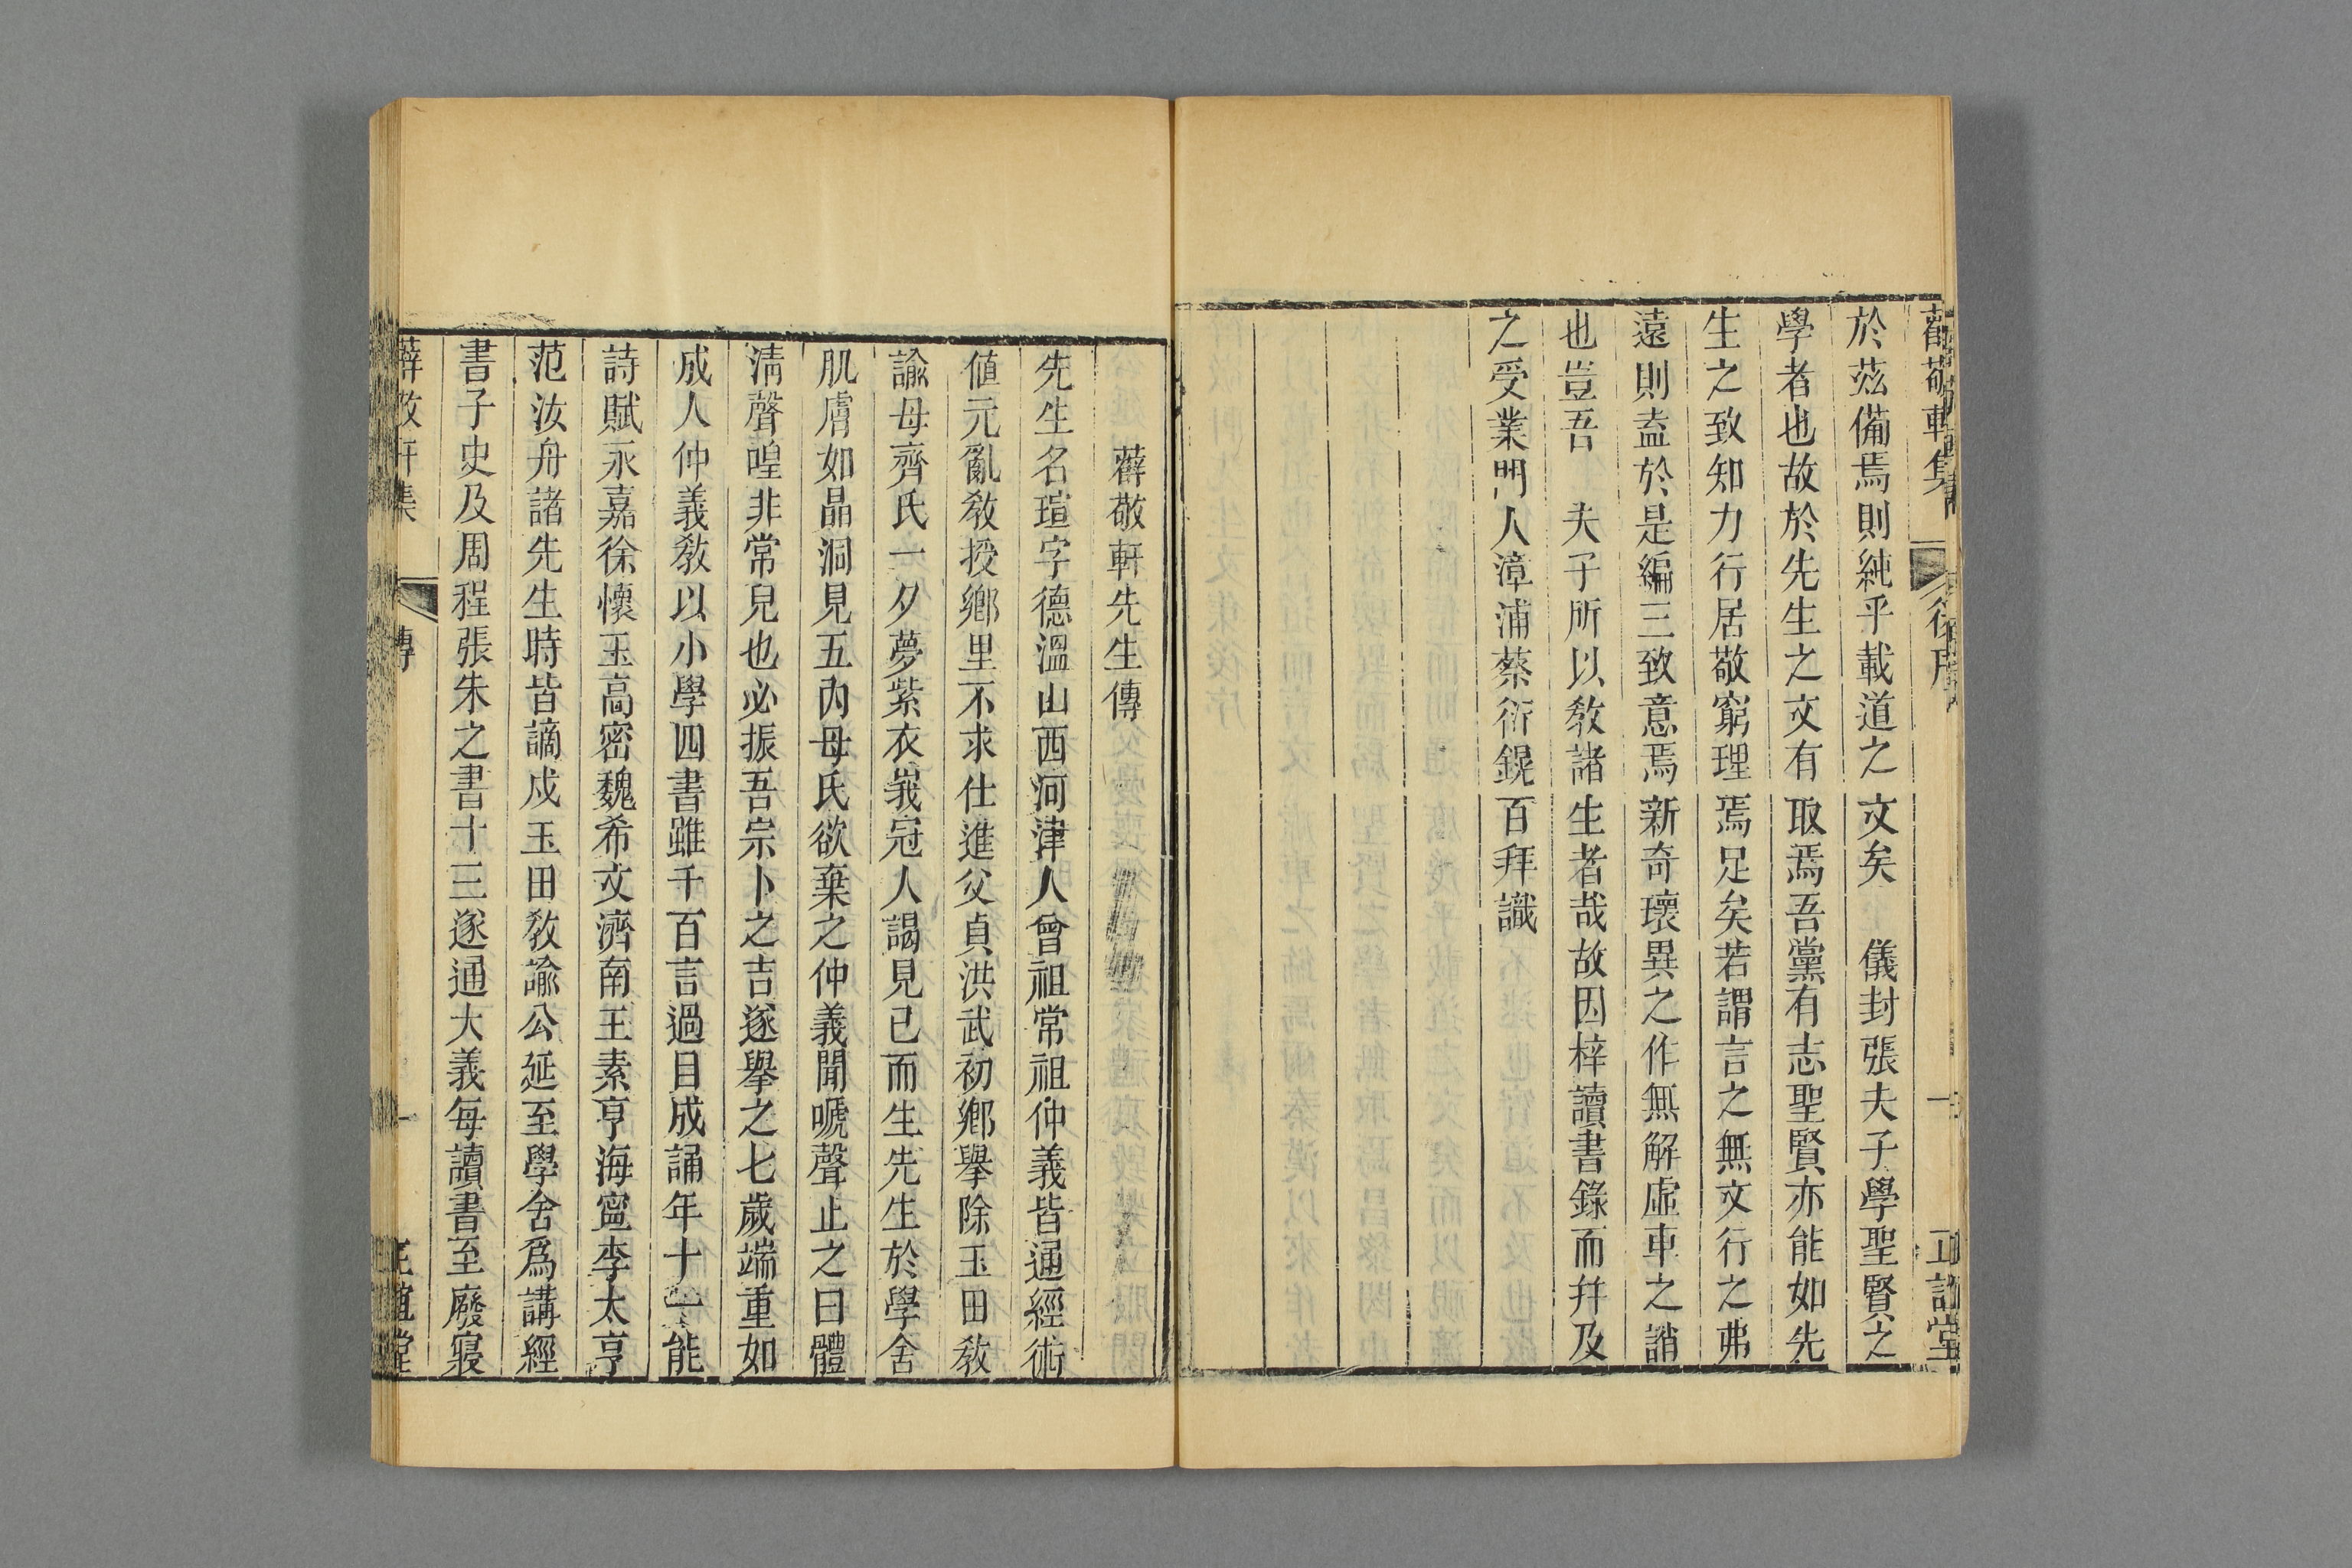 薛敬軒集 後序 二 正誼堂
於茲備焉則純乎載道之文矣 儀封張夫子學聖賢之
學者也故於先生之文有取焉吾黨有志聖賢亦能如先
生之致知力行居敬窮理焉足矣若謂言之無文行之弗
遠則盍於是編三致意焉新奇瓌異之作無解虛車之誚
也豈吾 夫子所以敎諸生者哉故因梓讀書錄而幷及
之受業門人漳浦蔡衍鎤百拜識
薛敬軒先生傳
先生名瑄字德溫山西河津人曾祖常祖仲義皆通經術
値元亂敎授鄕里不求仕進父貞洪武初鄕舉除玉田敎
諭母齊氏一夕夢紫衣峩冠人謁見已而生先生於學舍
肌膚如晶洞見五內母氏欲棄之仲義聞嗁聲止之曰體
淸聲喤非常兒也必振吾宗卜之吉遂舉之七歲端重如
成人仲義敎以小學四書雖千百言過目成誦年十二能
詩賦永嘉徐懷玉高密魏希文濟南王素亨海寧李太亨
范汝舟諸先生時皆謫戍玉田敎諭公延至學舍爲講經
書子史及周程張朱之書十三遂通大義每讀書至廢寢
薛敬軒集 傳 一 正誼堂